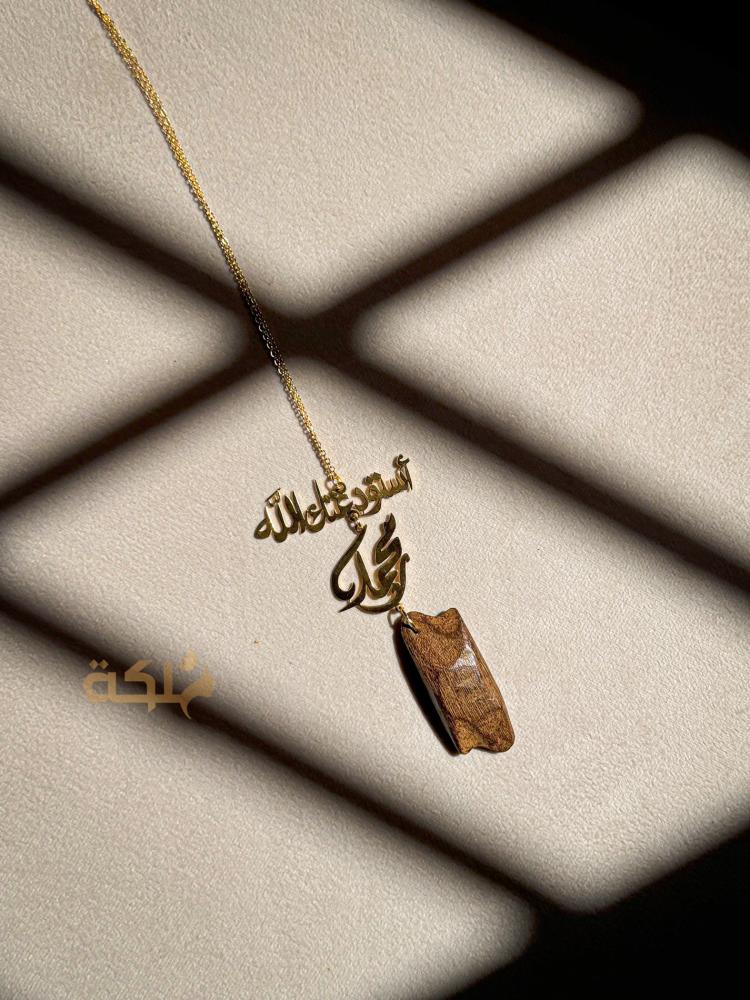 أستودعتك الله
محمد
ملكة